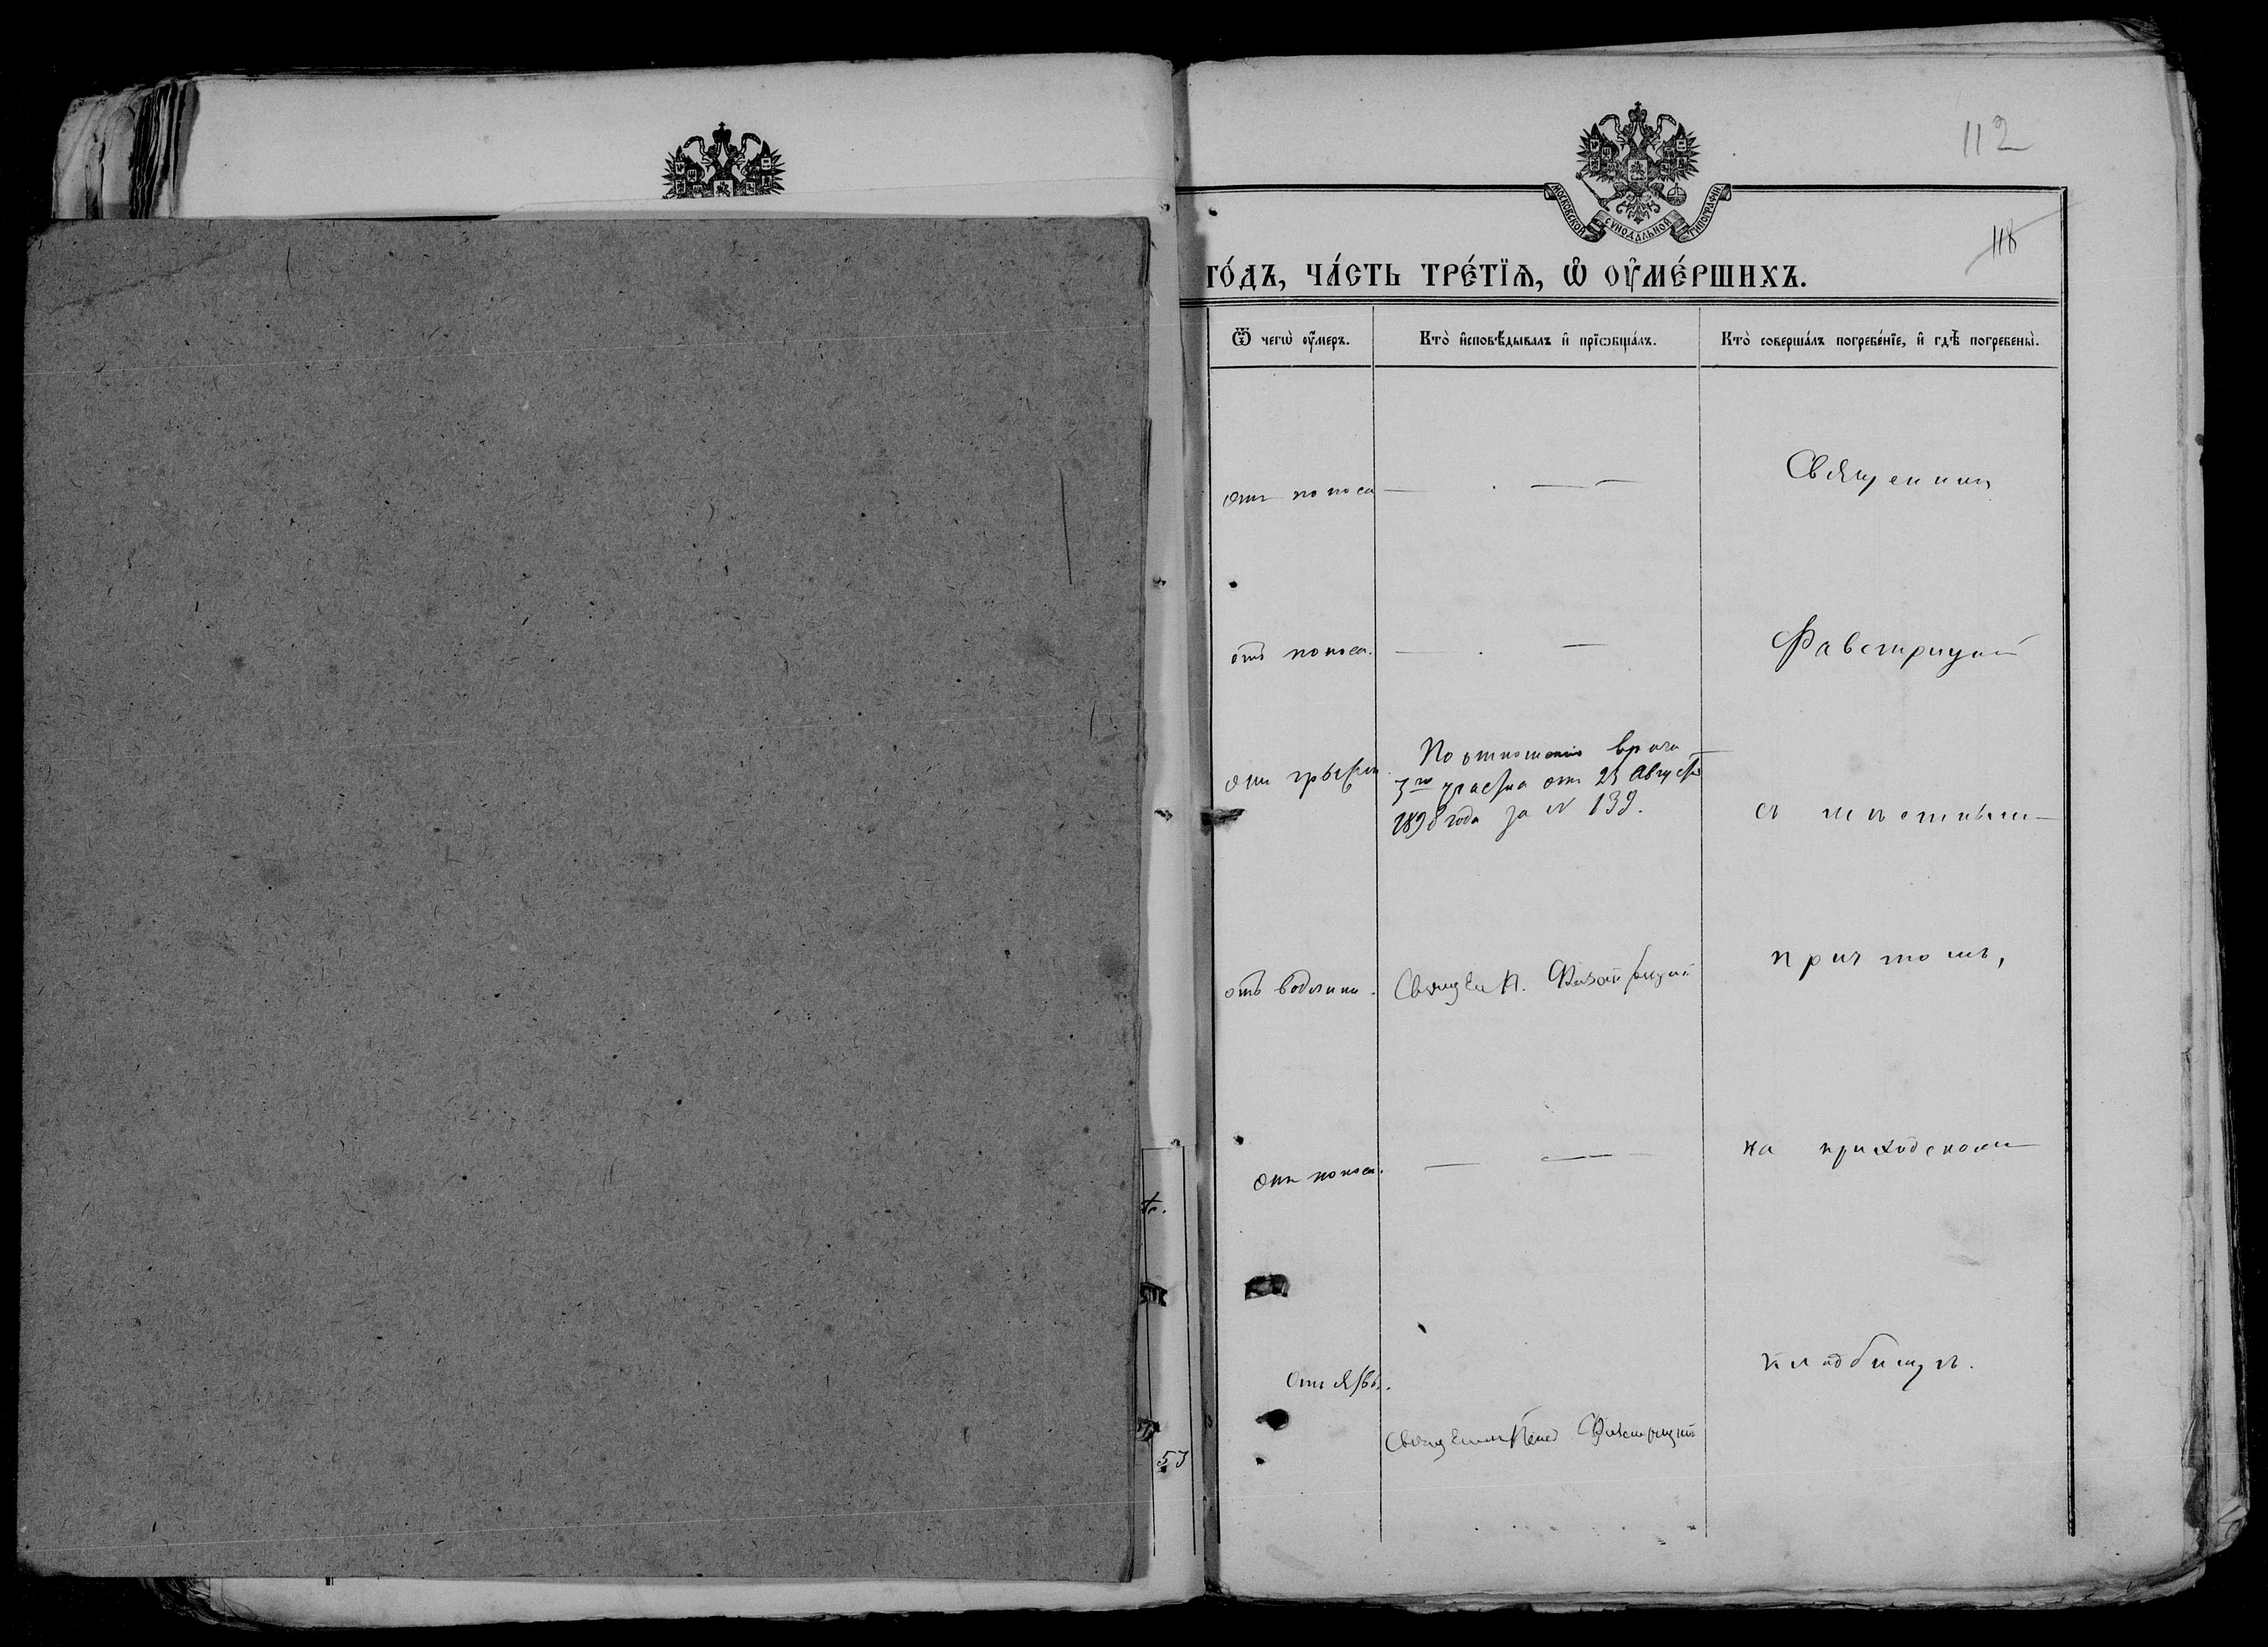 112
МОСКОВСКОЙ СѴНОДАЛЬНОЙ ТИПОГРАФІИ
118
го́дъ, ча́сть тре́тїѧ, ѡ҆ оу҆ме́ршихъ.
Ѿ чегѡ̀ оу҆́меръ.
Кто̀ и҆сповѣ́дывалъ и҆ прїѡбща́лъ.
Кто̀ соверша́лъ погребе́нїе, и҆ гдѣ̀ погребены̀.
отъ поноса
Священникъ
отъ поноса.
Фавстрицкій
отъ грыжи.
По отношенію врача
3го участка отъ 23 Августа
1898 года за № 139.
съ мѣстнымъ
отъ водянки.
Священ. П. Фавстрицкій
причтомъ,
отъ поноса.
на приходскомъ
отъ язвы.
кладбищѣ.
Священникъ Фавстрицкій
53